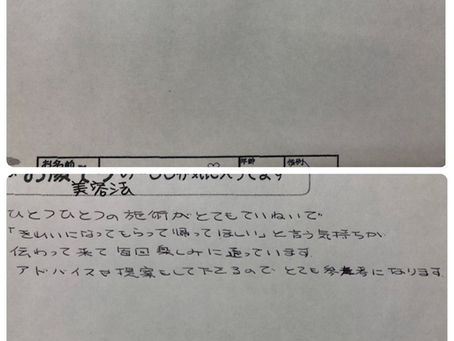 お名前 年齢 性別
美容法
ひとつひとつの施術がとてもていねいで
「きれいになってもらって帰ってほしい」と言う気持ちが
伝わって来て毎回楽しみに通っています
アドバイスや提案もして下さるので とても参考になります